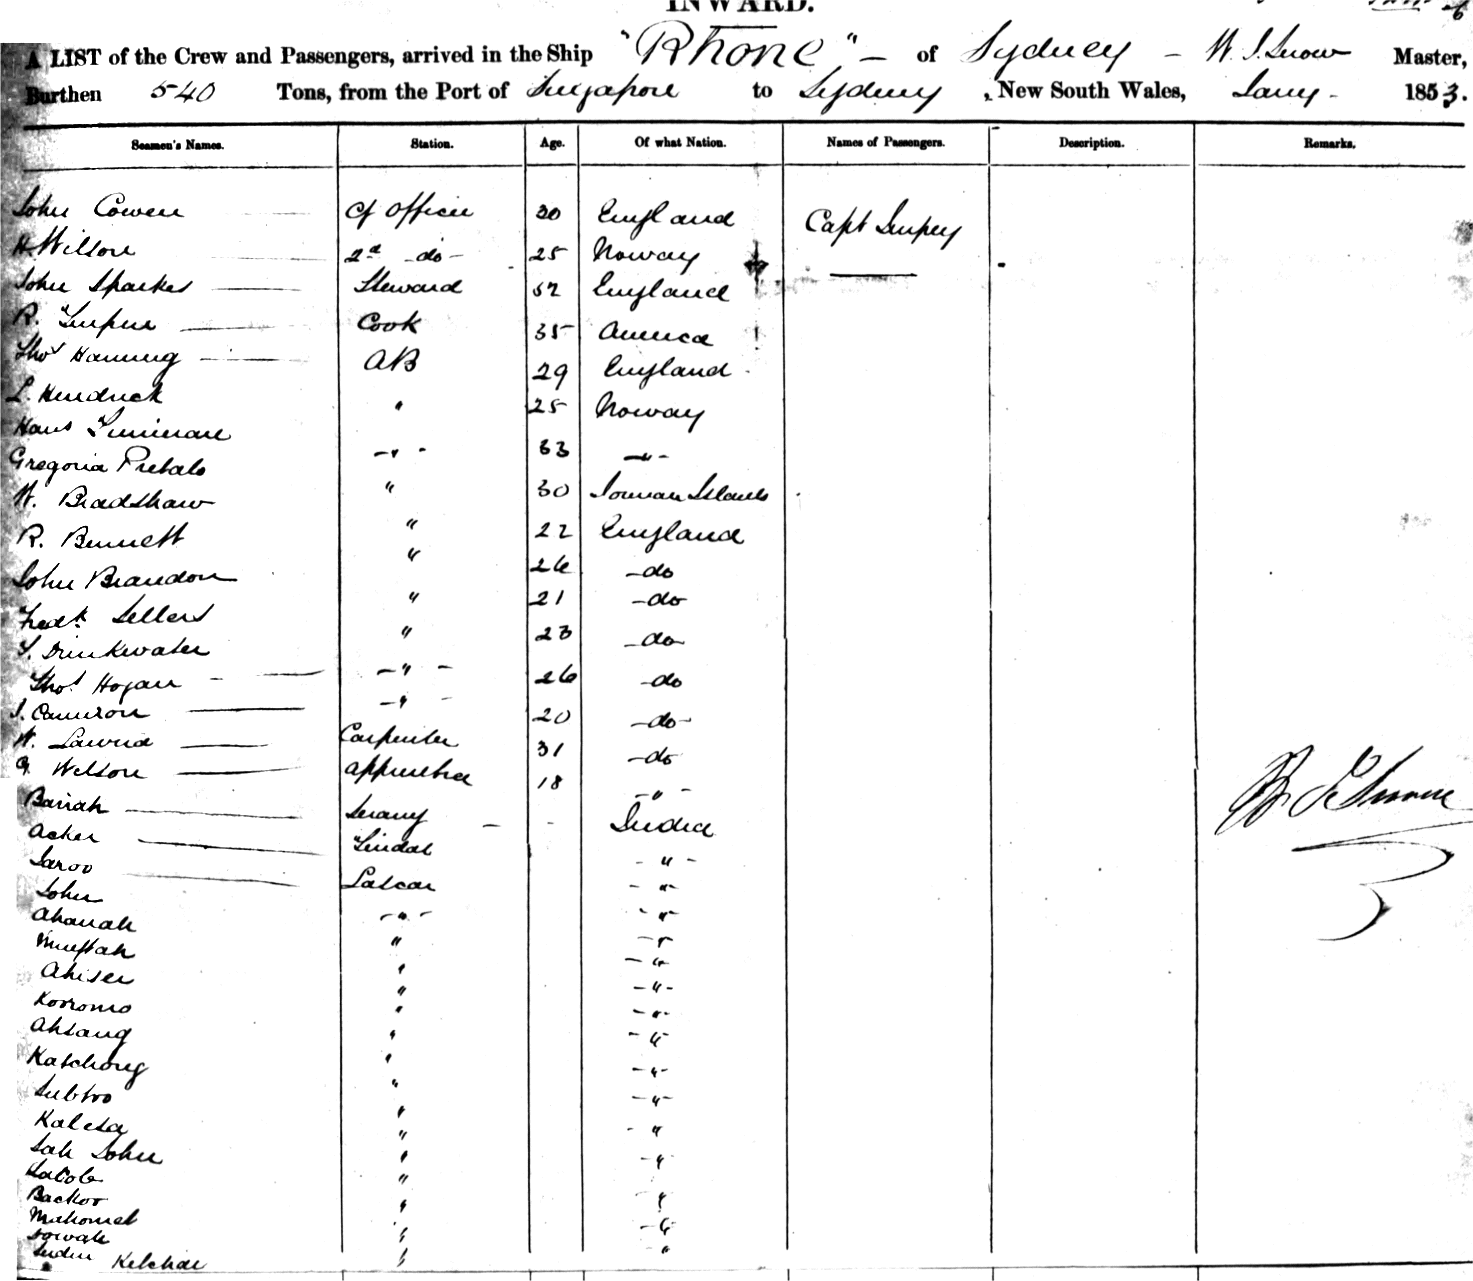 INWARD.
A LIST of the Crew and Passengers, arrived in the Ship "Rhone" – of Sydney – W. J. Snow Master,
Burthen 540 Tons, from the Port of Singapore to Sydney, New South Wales, Jany - 1853.
Seamen's Names. Station. Age. Of what Nation. Names of Passengers. Description. Remarks.
John Cowen Cf Officer 30 England Capt Impey
H. Wilson 2d - do - 25 Noway
John Sparkes Steward 52 England
R. Cook 35 America
Thos Hanning AB 29 England
L. Hendrick " 25 Noway
Hans - " - 33 - " -
Gregoria " 30 Islands
W. Bradshaw " 22 England
R. Bennett " 26 - do
John Brandon " 21 - do
Fredk. Sellers " 23 - do
T. Drinkwater - " - 26 - do
Thos. Hogan - " - 20 - do -
J. Cameron Carpenter 31 - do
W. Lawrie apprentice 18 - " -
G. Wilson
Bariah Serang - - India
Acker Tindal - " -
Saroo Lascar - " -
John - " - - " -
Ahanah " - "
" - "
Ahisen " - " -
Kooromo " - " -
Ahsang " - " -
Katchong " - " -
Subtoo " - " -
Kalesa " - "
Sah John " - "
Jacob " "
Backoo " - " -
Mahomet " - "
Sowah "
Kelchai "
W. J. Snow